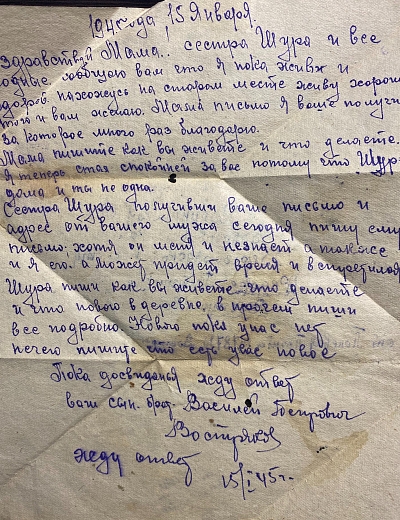 1945 года 15 Января.
здравствуй Мама! сестра Шура и все
родные сообщаю вам что я пока живж и
здоров. нахожусь на старом месте живу хорошо
того и вам желаю. Мама письмо я ваше получил
за которое много раз благодарю.
Мама пишите как вы живете и что делаете.
Я теперь стал спокойней за вас потому что Шура
дома и ты не одна.
Сестра Шура получивши ваше письмо и
адрес от вашего мужа сегодня пишу ему
письмо, хотя он меня и незнает а также
и я его. а может придет время и встретимся
Шура пиши как вы живете что делаете
и что нового в деревне, в прочем пиши
все подробно. Нового пока унас нет
нечего пишите что есть увас новое
Пока досвиданья жду ответ
ваш сын. брат. Василей Петрович
Востряков
жду ответ
15/I 45г.